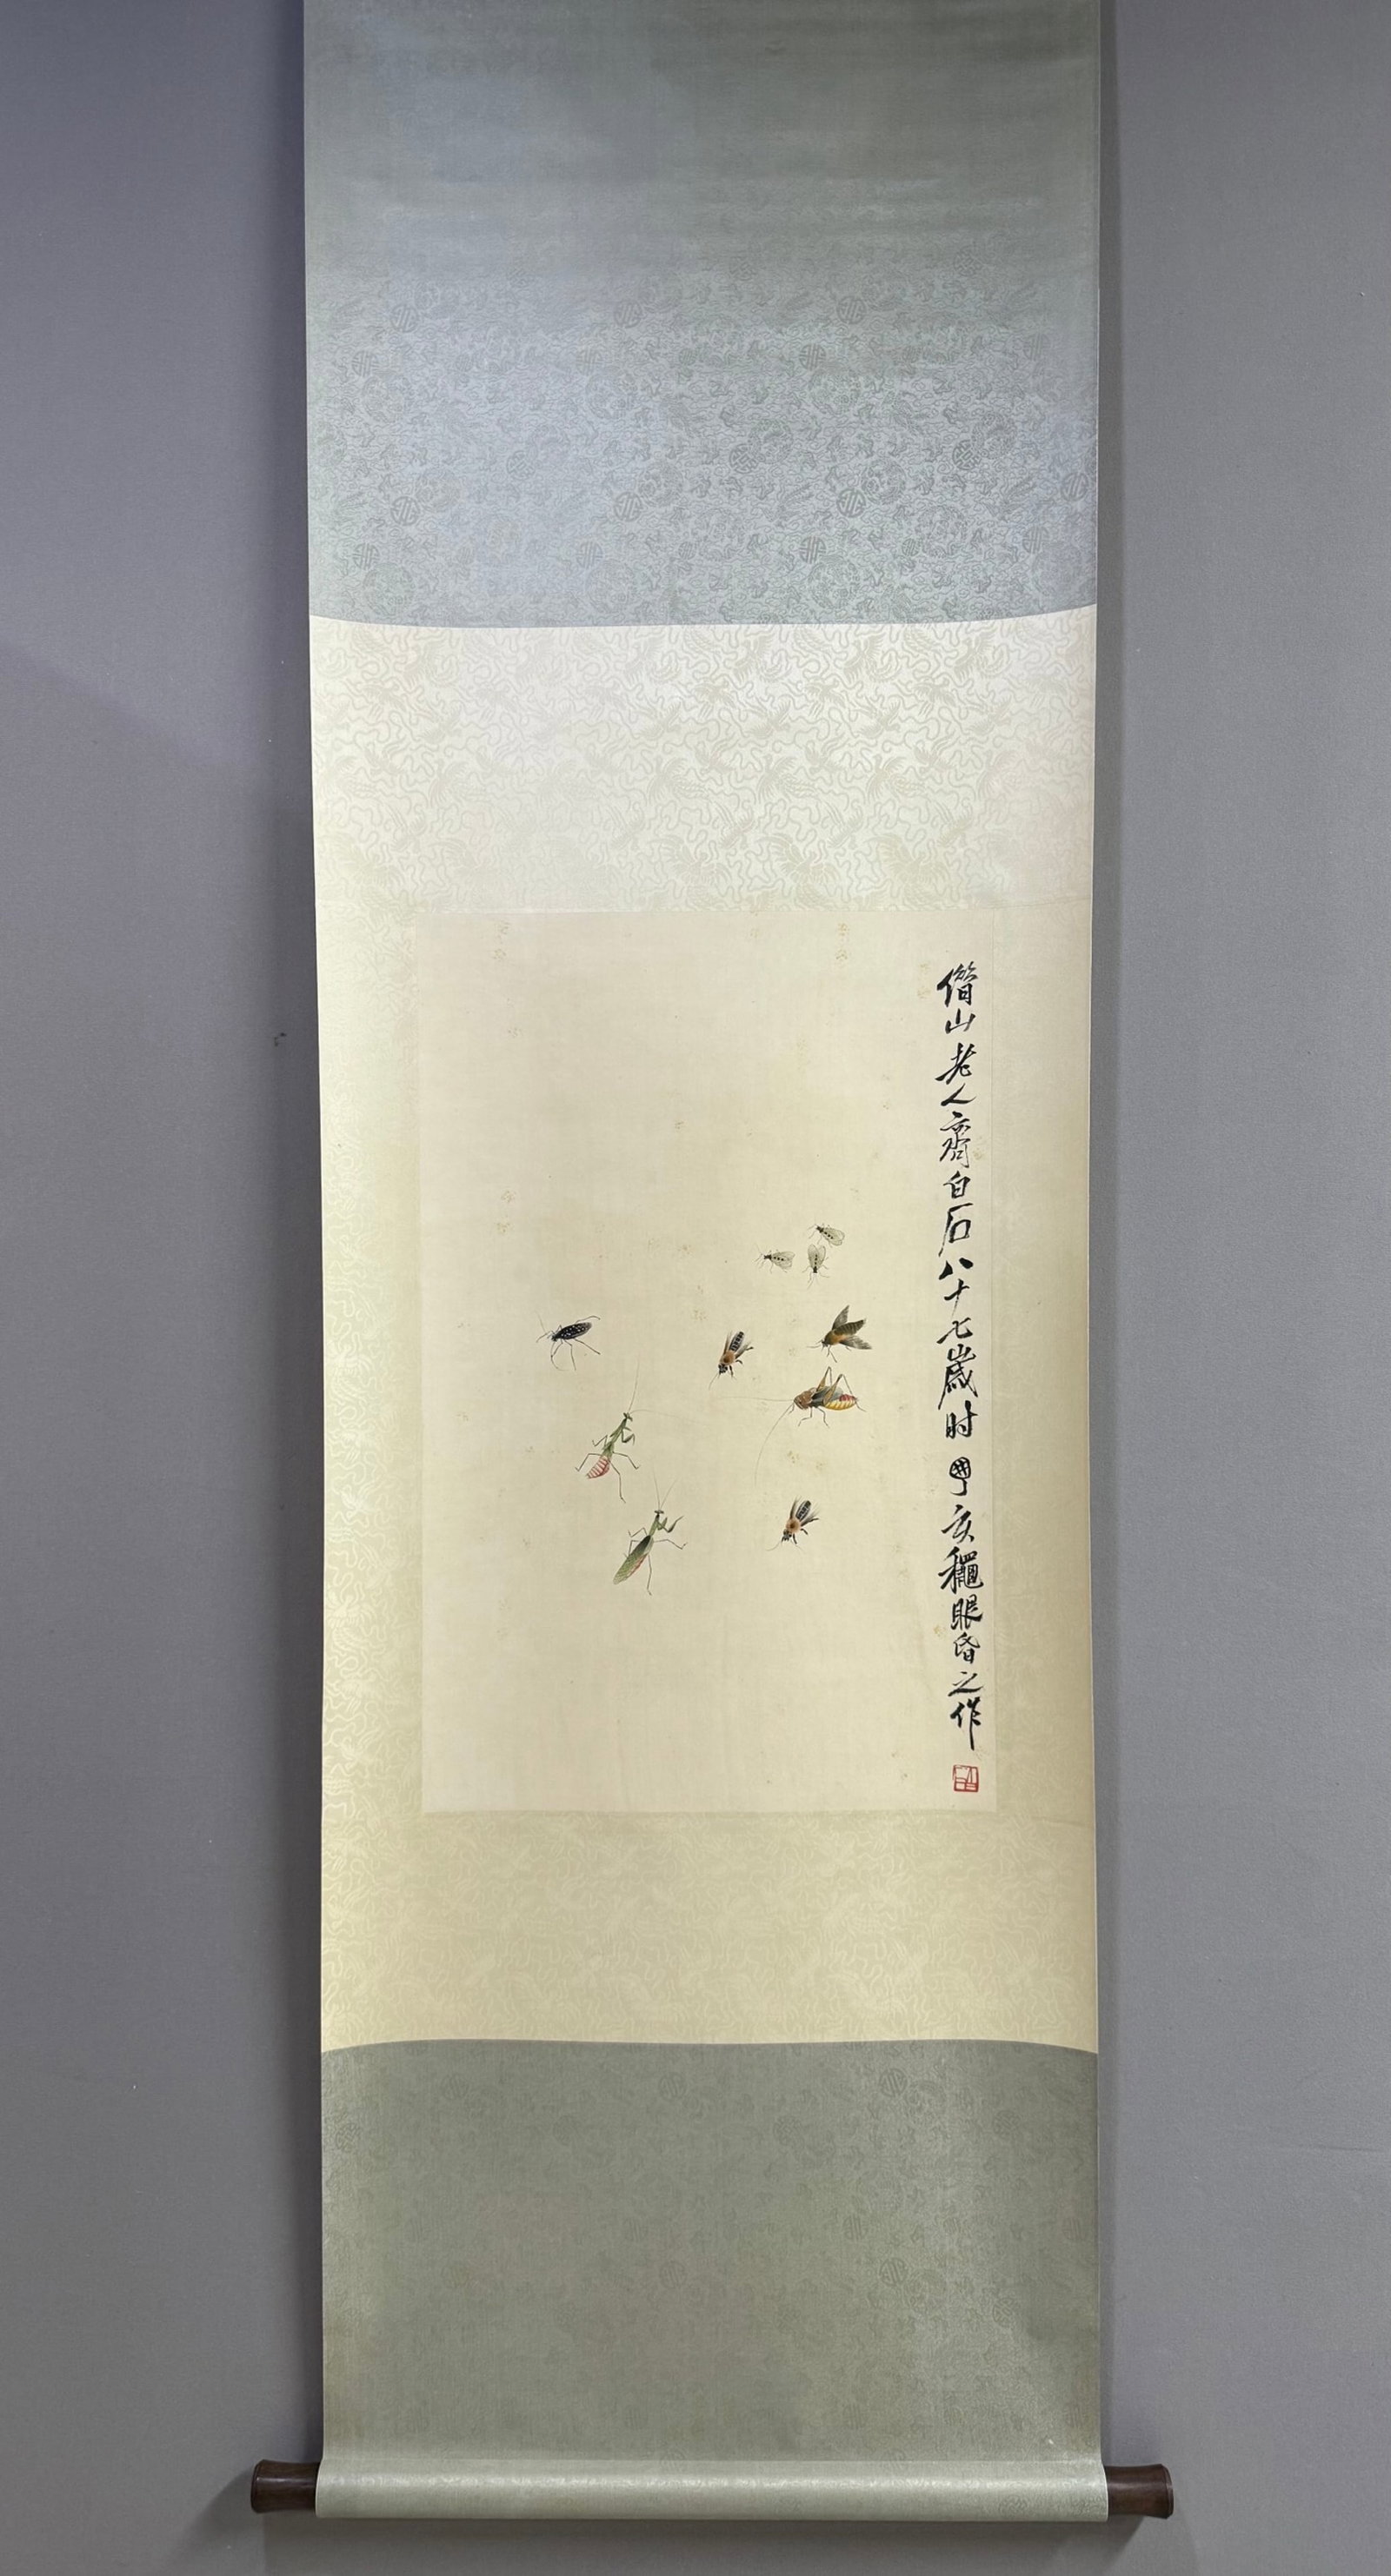 借山老人齊白石八十七歲时丁亥龝眼昏之作